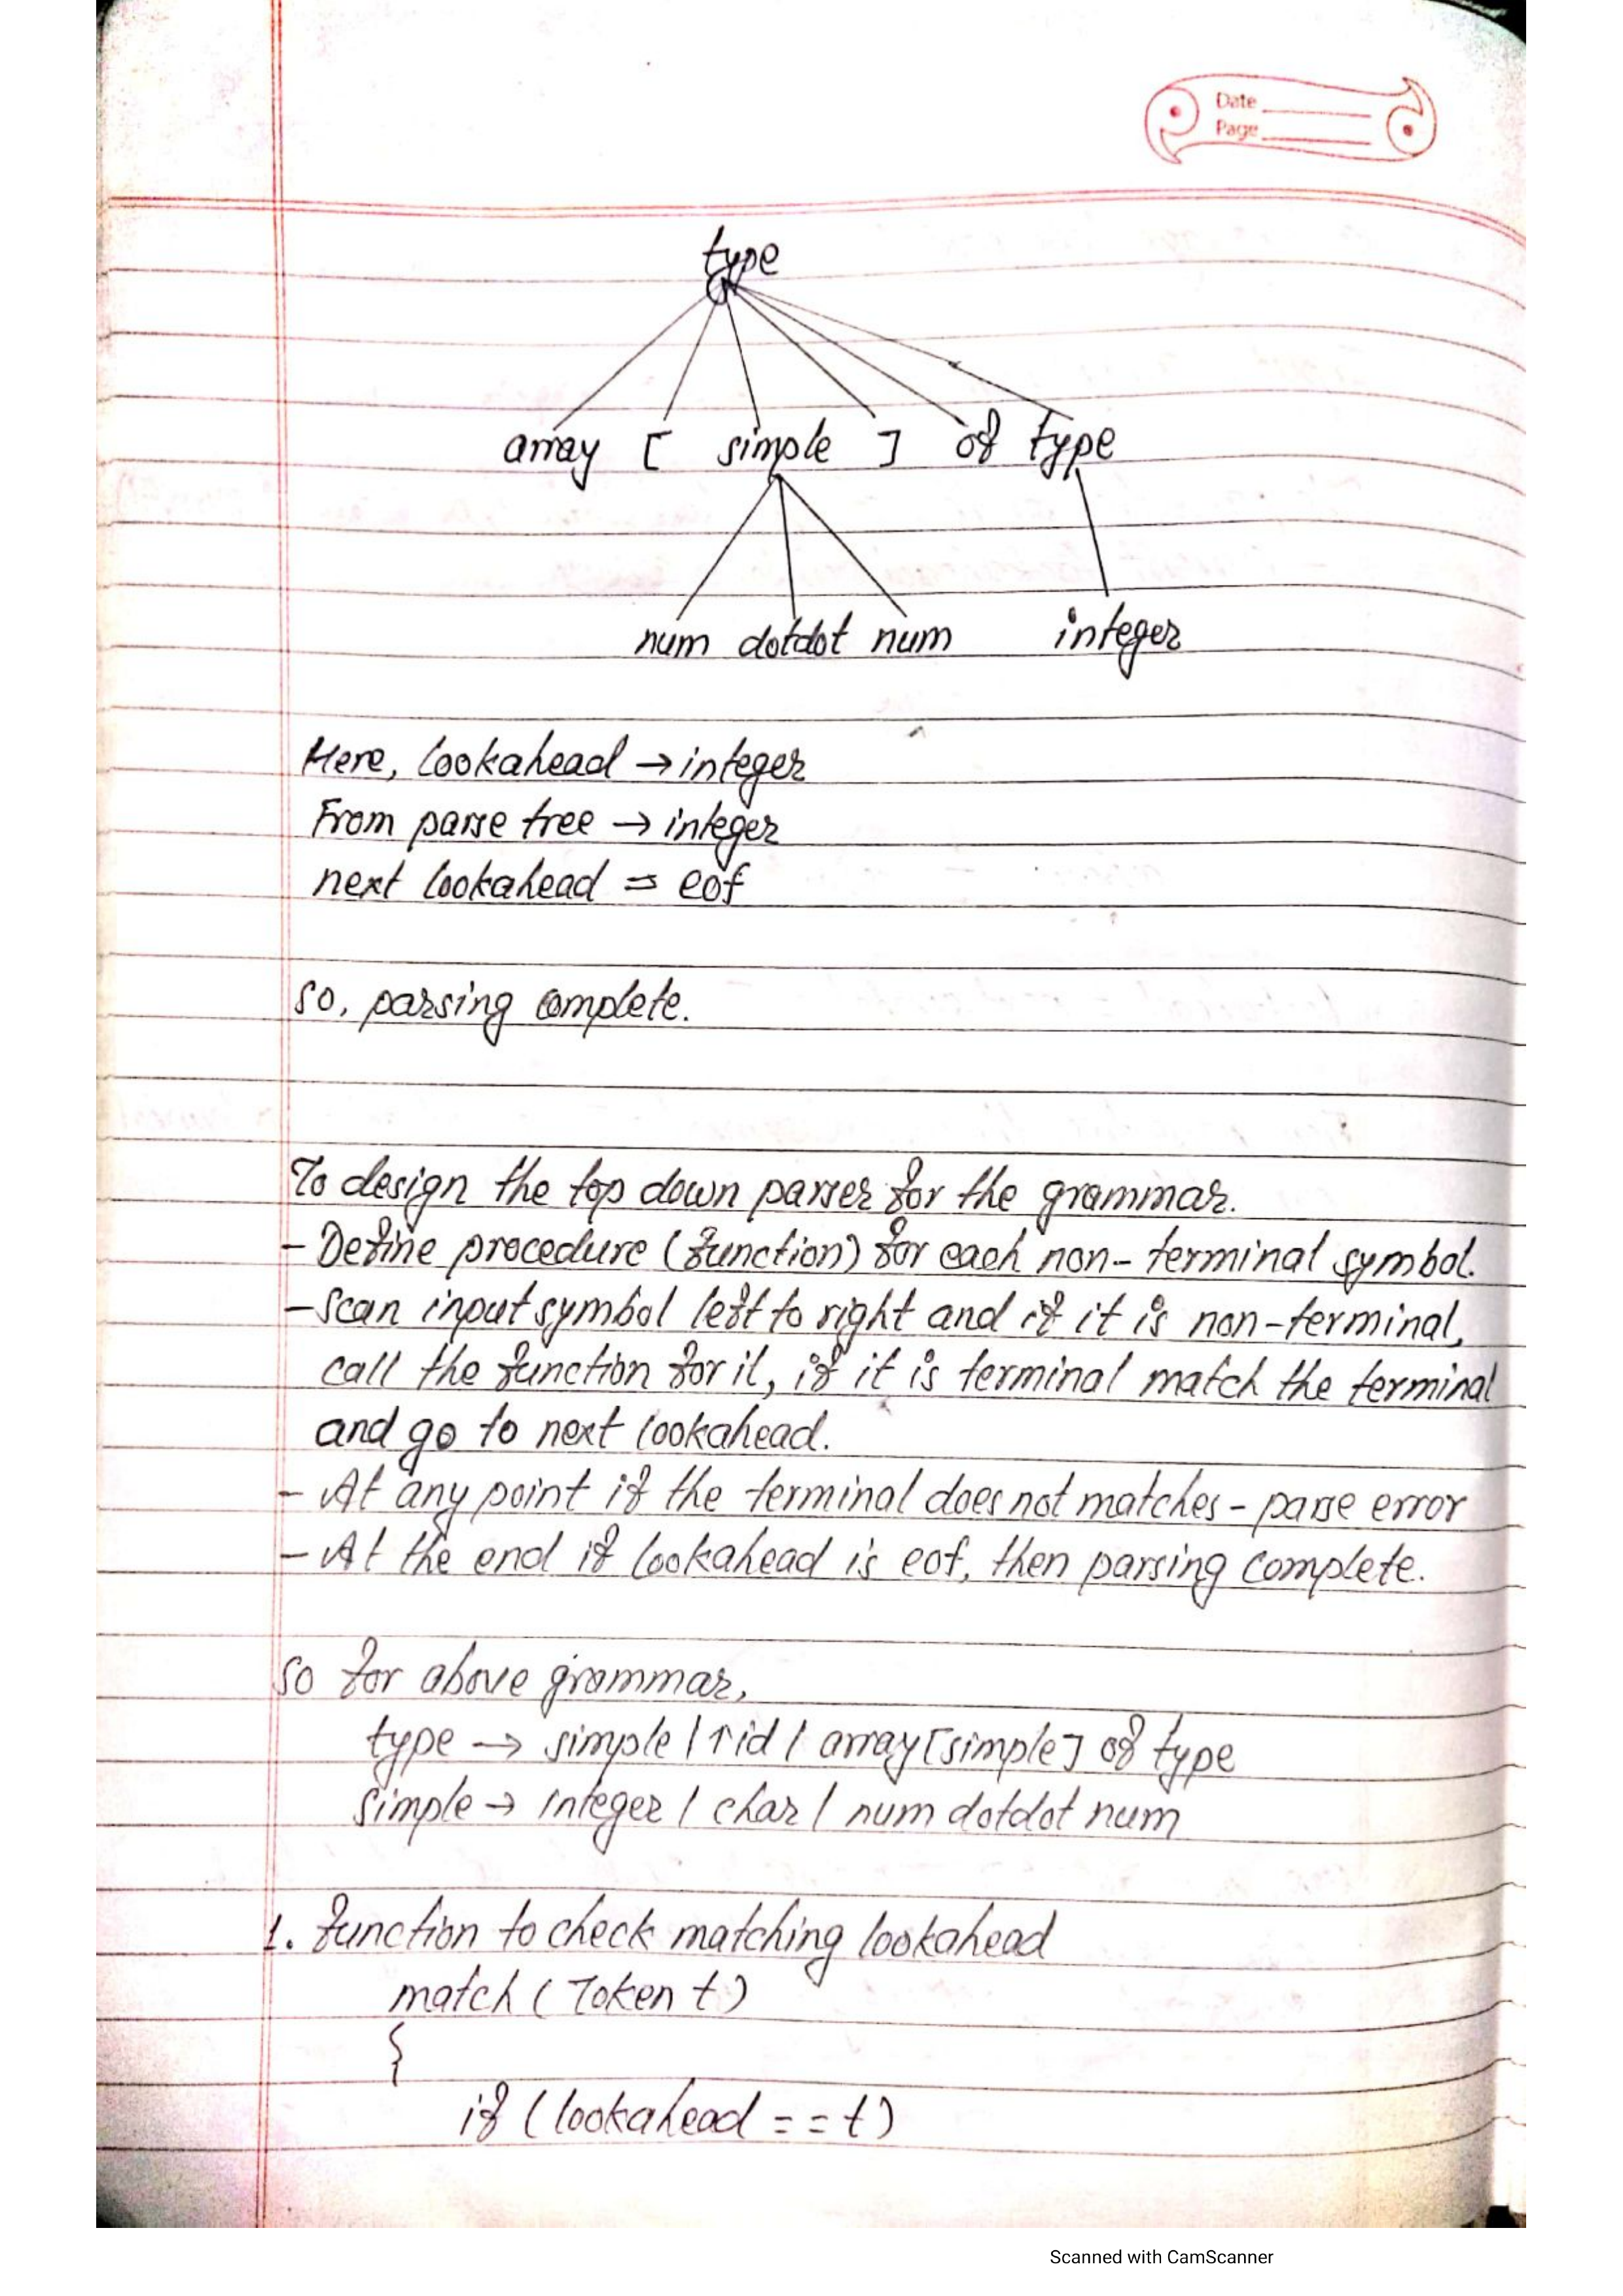 Date
Page
type
array [ simple ] of type
num dotdot num integer
Here, lookahead → integer
From parse tree → integer
next lookahead = eof
So, parsing complete.
To design the top down parser for the grammar.
- Define procedure (function) for each non-terminal symbol.
- Scan input symbol left to right and if it is non-terminal,
call the function for it, if it is terminal match the terminal
and go to next lookahead.
- At any point if the terminal does not matches - parse error
- At the end if lookahead is eof, then parsing complete.
So for above grammar,
type → simple | ↑id | array [simple] of type
simple → integer | char | num dotdot num
1. function to check matching lookahead
match (Token t)
{
if (lookahead == t)
Scanned with CamScanner